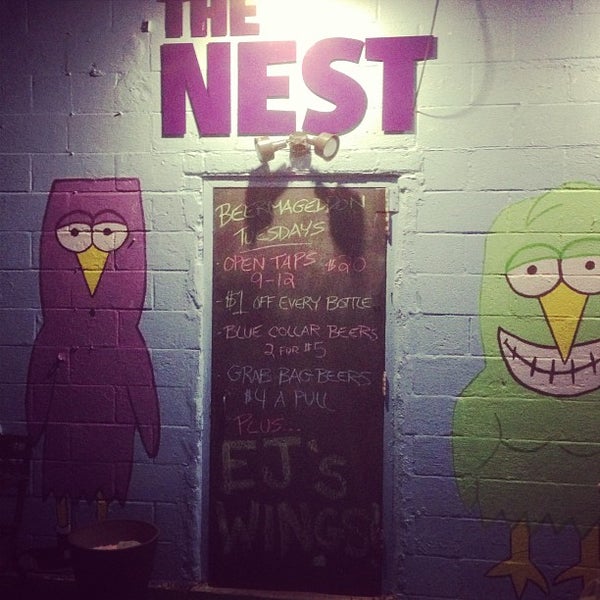 THE
NEST
BEERMAGEDDON
TUESDAYS
- OPEN TAPS $20
9-12
- $1 OFF EVERY BOTTLE
- BLUE COLLAR BEERS
2 FOR $5
- GRAB BAG BEERS
$4 A PULL
PLUS...
EJ'S
WINGS!